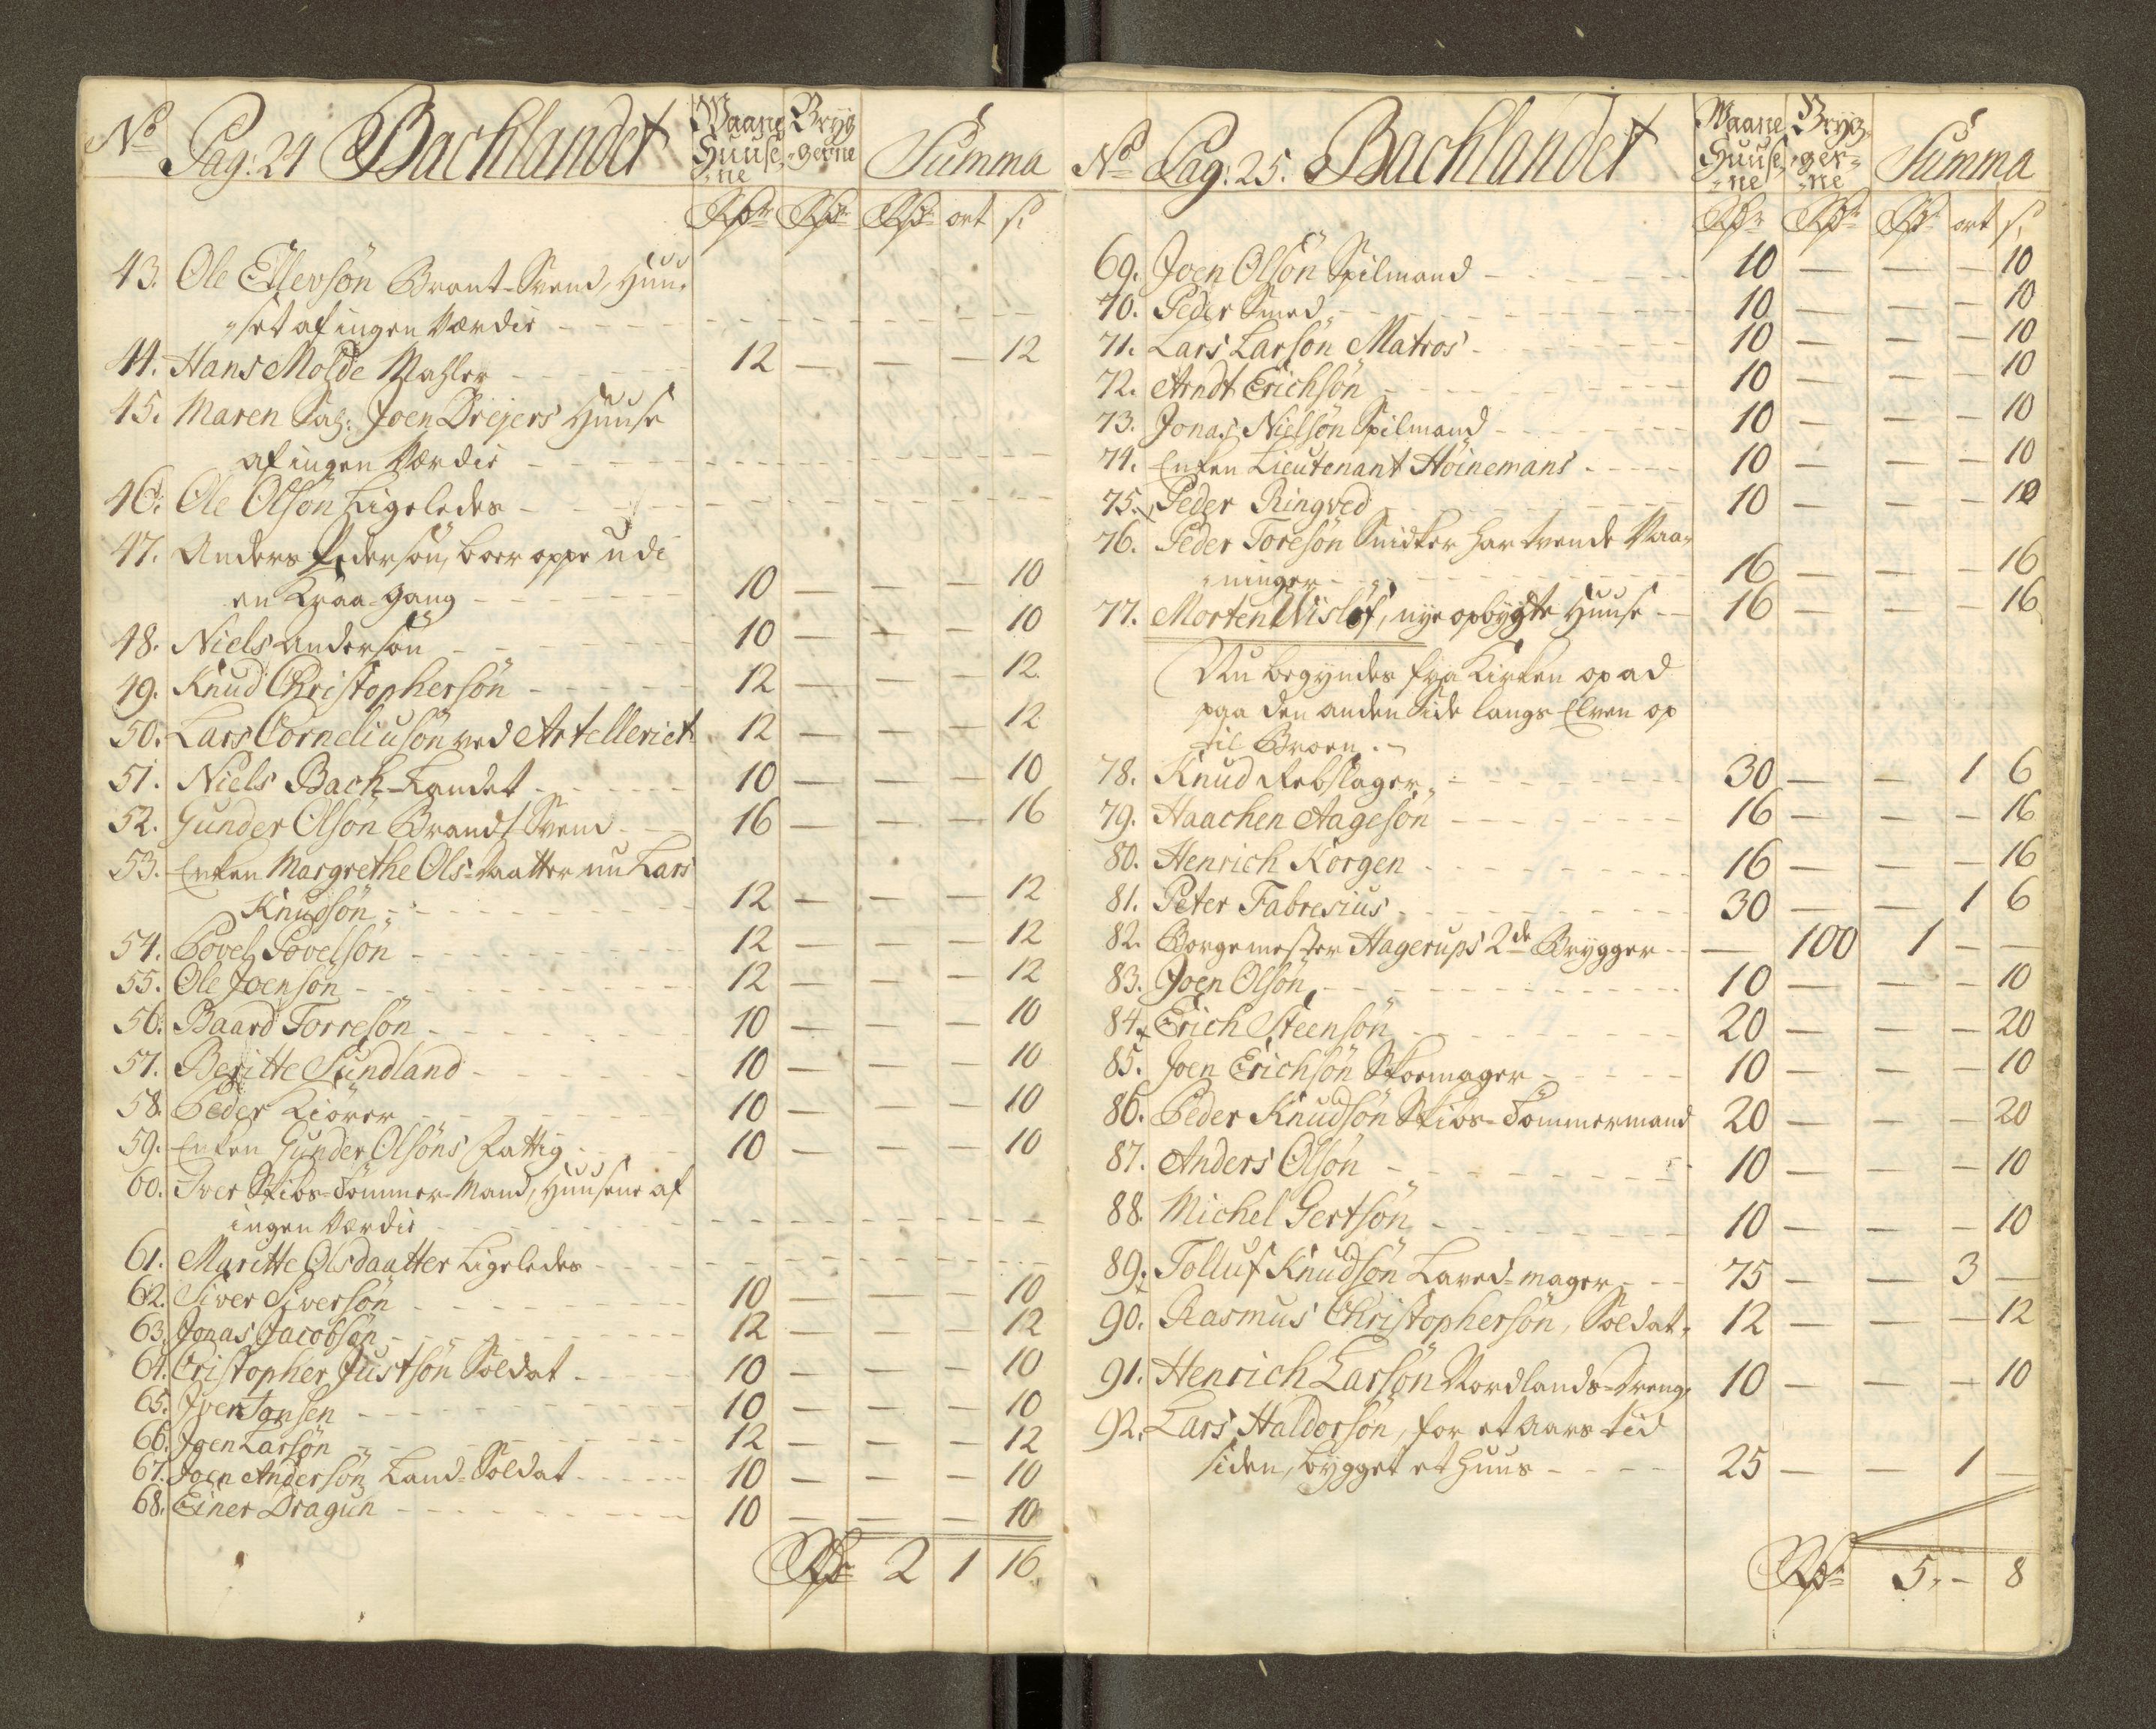 No Pag: 24 Bachlandet Waane Huuse-ne Bryggerne Summa
Rdr Rdr Rdr ort s
43. Ole Ellevsön Brant-Svend, Huu-
set af ingen Værdie
44. Hans Molde Mahler 12 — — — 12
45. Maren Sal: Joen Dreyers Huuse
af ingen Værdie
46. Ole Olsön Ligeledes
47. Anders Pedersön, boer oppe udi
en Kraa-Gang 10 — — — 10
48. Niels Andersön 10 — — — 10
49. Knud Christophersön 12 — — — 12
50. Lars Corneliusön ved Artelleriet 12 — — — 12
51. Niels Bach-Landet 10 — — — 10
52. Gunder Olsön Brandt-Svend 16 — — — 16
53. Enken Margrethe Ols-Daatter nu Lars
Knudsön 12 — — — 12
54. Povel Povelsön 12 — — — 12
55. Ole Joensön 12 — — — 12
56. Baard Torresön 10 — — — 10
57. Beritte Sundland 10 — — — 10
58. Peder Kiörer 10 — — — 10
59. Enken Gunder Olsöns Fattig 10 — — — 10
60. Iver Skibs-Tömmer-Mand, Huusene af
ingen Værdie
61. Maritte Olsdaatter Ligeledes
62. Siver Siversön 10 — — — 10
63. Jonas Jacobsön 12 — — — 12
64. Cristopher Justsön Soldat 10 — — — 10
65. Iver Jonsen 10 — — — 10
66. Joen Larsön 12 — — — 12
67. Joen Andersön Land-Soldat 10 — — — 10
68. Einer Dragun 10 — — — 10
Rdr 2 1 16
No Pag: 25. Bachlandet Waane Huuse-ne Brygger-ne Summa
Rdr Rdr Rdr ort s
69. Joen Olsön Spilmand 10 — — — 10
70. Peder Smed 10 — — — 10
71. Lars Larsön Matros 10 — — — 10
72. Arndt Erichsön 10 — — — 10
73. Jonas Nielsön Spilmand 10 — — — 10
74. Enken Lieutenant Höinemans 10 — — — 10
75. Peder Ringved 10 — — — 10
76. Peder Toresön Snidker har tvende Vaa-
ninger 16 — — — 16
77. Morten Wislöf, nye opbygte Huuse 16 — — — 16
Nu begyndes fra Kirken op ad
paa den anden Side langs Elven op
til Broen.
78. Knud Rebslager 30 — — 1 6
79. Haachen Aagesön 16 — — — 16
80. Henrich Korgen 16 — — — 16
81. Peter Fabresius 30 — — 1 6
82. Borgemester Hagerups 2de Brygger — 100 1 — —
83. Joen Olsön 10 — — — 10
84. Erich Steensön 20 — — — 20
85. Joen Erichsön Skoemager 10 — — — 10
86. Peder Knudsön Skibs-Tömmermand 20 — — — 20
87. Anders Olsön 10 — — — 10
88. Michel Gertsön 10 — — — 10
89. Tolluf Knudsön Laved-mager 75 — — 3 —
90. Rasmus Christophersön, Soldat 12 — — — 12
91. Henrich Larsön Nordlands-Dreng 10 — — — 10
92. Lars Haldorsön, for et Aars tid
siden, bygget et Huus 25 — — 1 —
Rdr 5 — 8